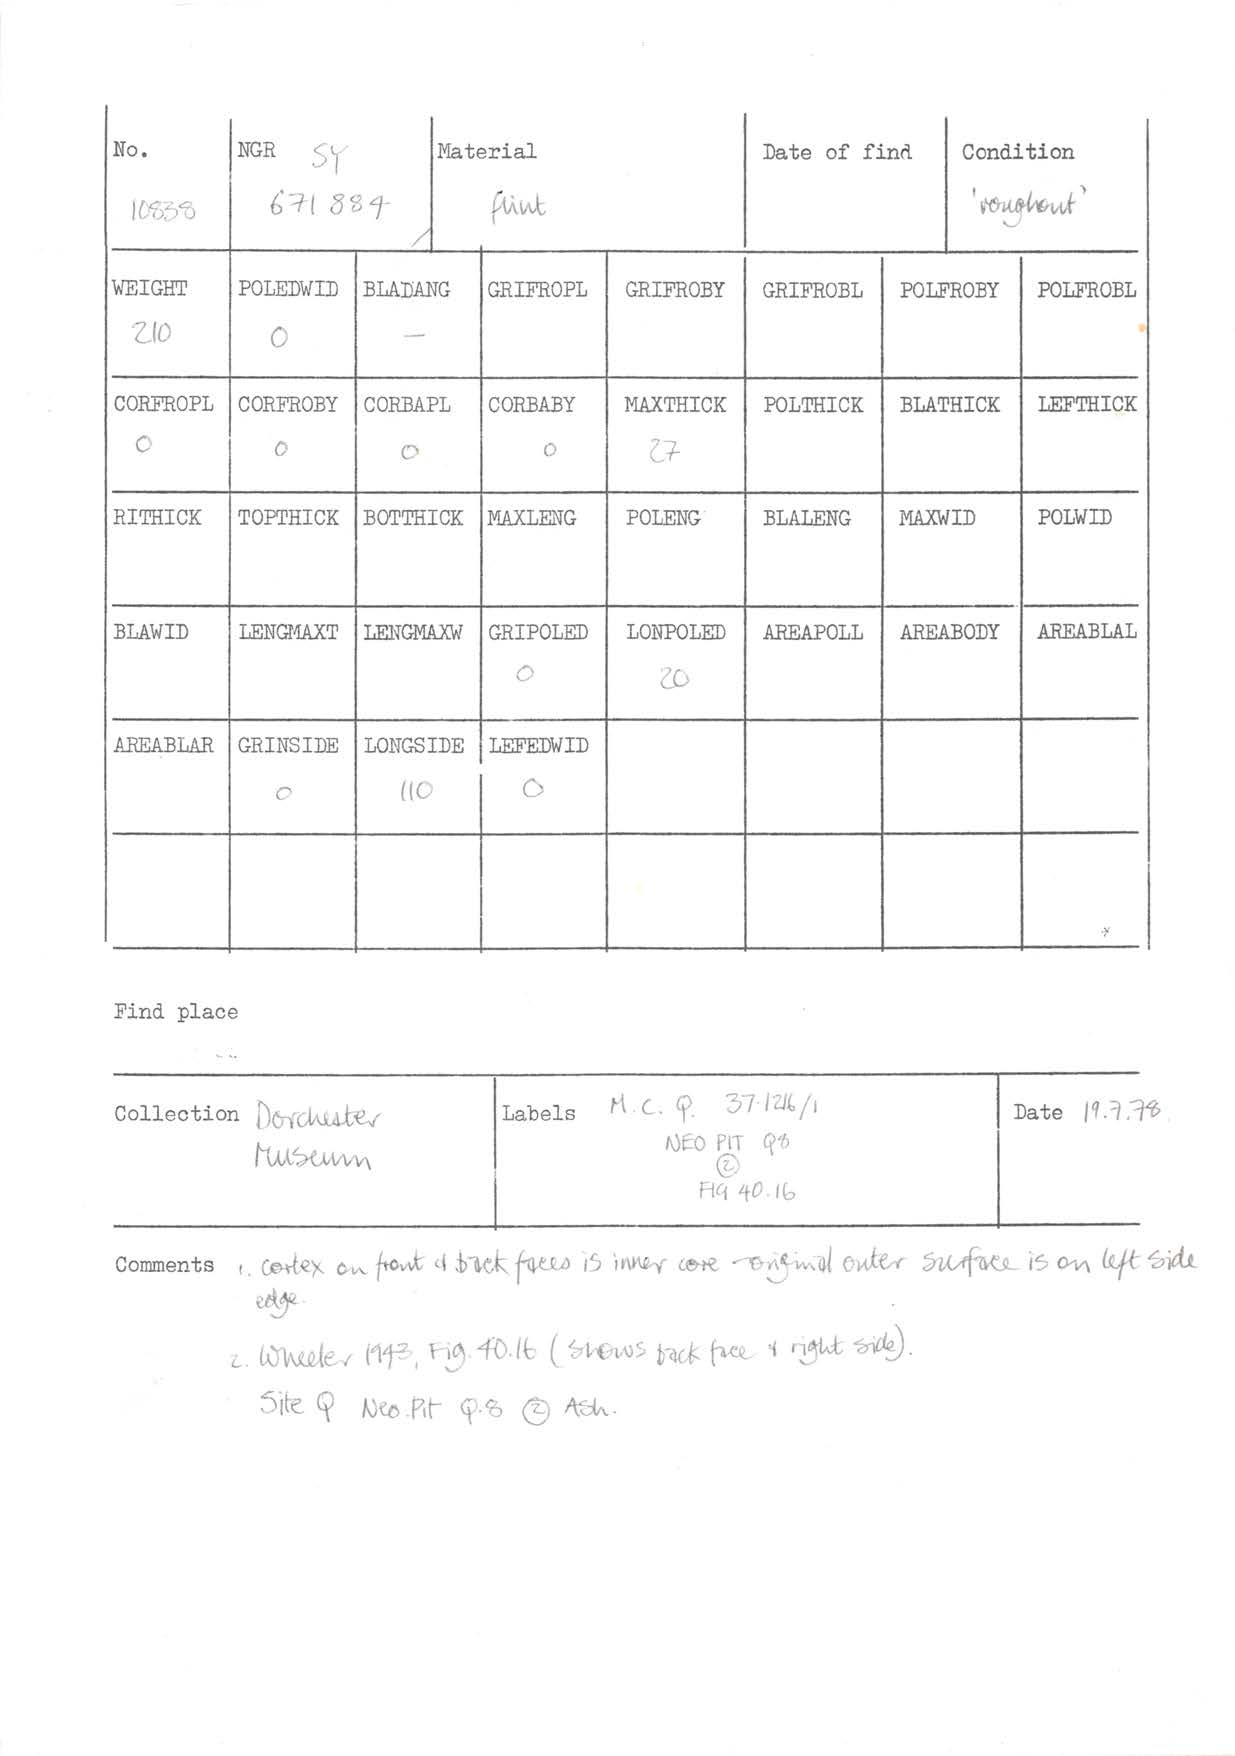 No. NGR SY Material Date of find Condition
10838 671 884 flint 'roughout'
WEIGHT POLEDWID BLADANG GRIFROPL GRIFROBY GRIFROBL POLFROBY POLFROBL
210 0 —
CORFROPL CORFROBY CORBAPL CORBABY MAXTHICK POLTHICK BLATHICK LEFTHICK
0 0 0 0 27
RITHICK TOPTHICK BOTTHICK MAXLENG POLENG BLALENG MAXWID POLWID
BLAWID LENGMAXT LENGMAXW GRIPOLED LONPOLED AREAPOLL AREABODY AREABLAL
0 20
AREABLAR GRINSIDE LONGSIDE LEFEDWID
0 110 0
Find place
Collection Dorchester Labels M.C. Q. 37.1216/1 Date 19.7.78
Museum NEO PIT Q8
②
FIG 40.16
Comments 1. Cortex on front & back faces is inner core - original outer surface is on left side
edge.
2. Wheeler 1943, Fig. 40.16 (shows back face & right side).
Site Q Neo.Pit Q.8 ② Ash.